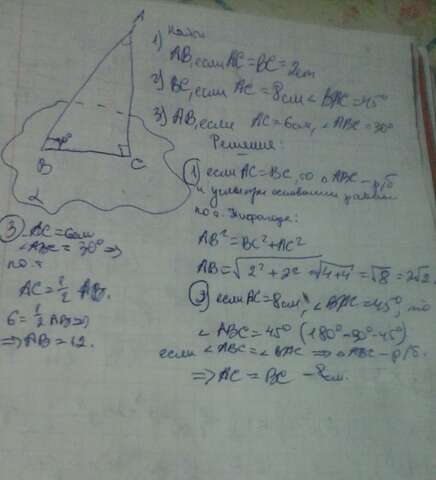 A
B
C
α
Найти
1) AB, если AC = BC = 2см
2) BC, если AC = 8см ∠ BAC = 45°
3) AB, если AC = 6см, ∠ ABC = 30°
Решение:
1) если AC = BC, то △ ABC – р/б
и углы при основании равны
по т. Пифагора:
AB² = BC² + AC²
AB = √2² + 2² = √4+4 = √8 = 2√2.
2) если AC = 8см, ∠ BAC = 45°, то
∠ ABC = 45° (180° - 90° - 45°)
если ∠ ABC = ∠ BAC ⇒ △ ABC – р/б.
⇒ AC = BC – 8см.
3. AC = 6см
∠ ABC = 30° ⇒
по т.
AC = 1/2 AB.
6 = 1/2 AB ⇒
⇒ AB = 12.